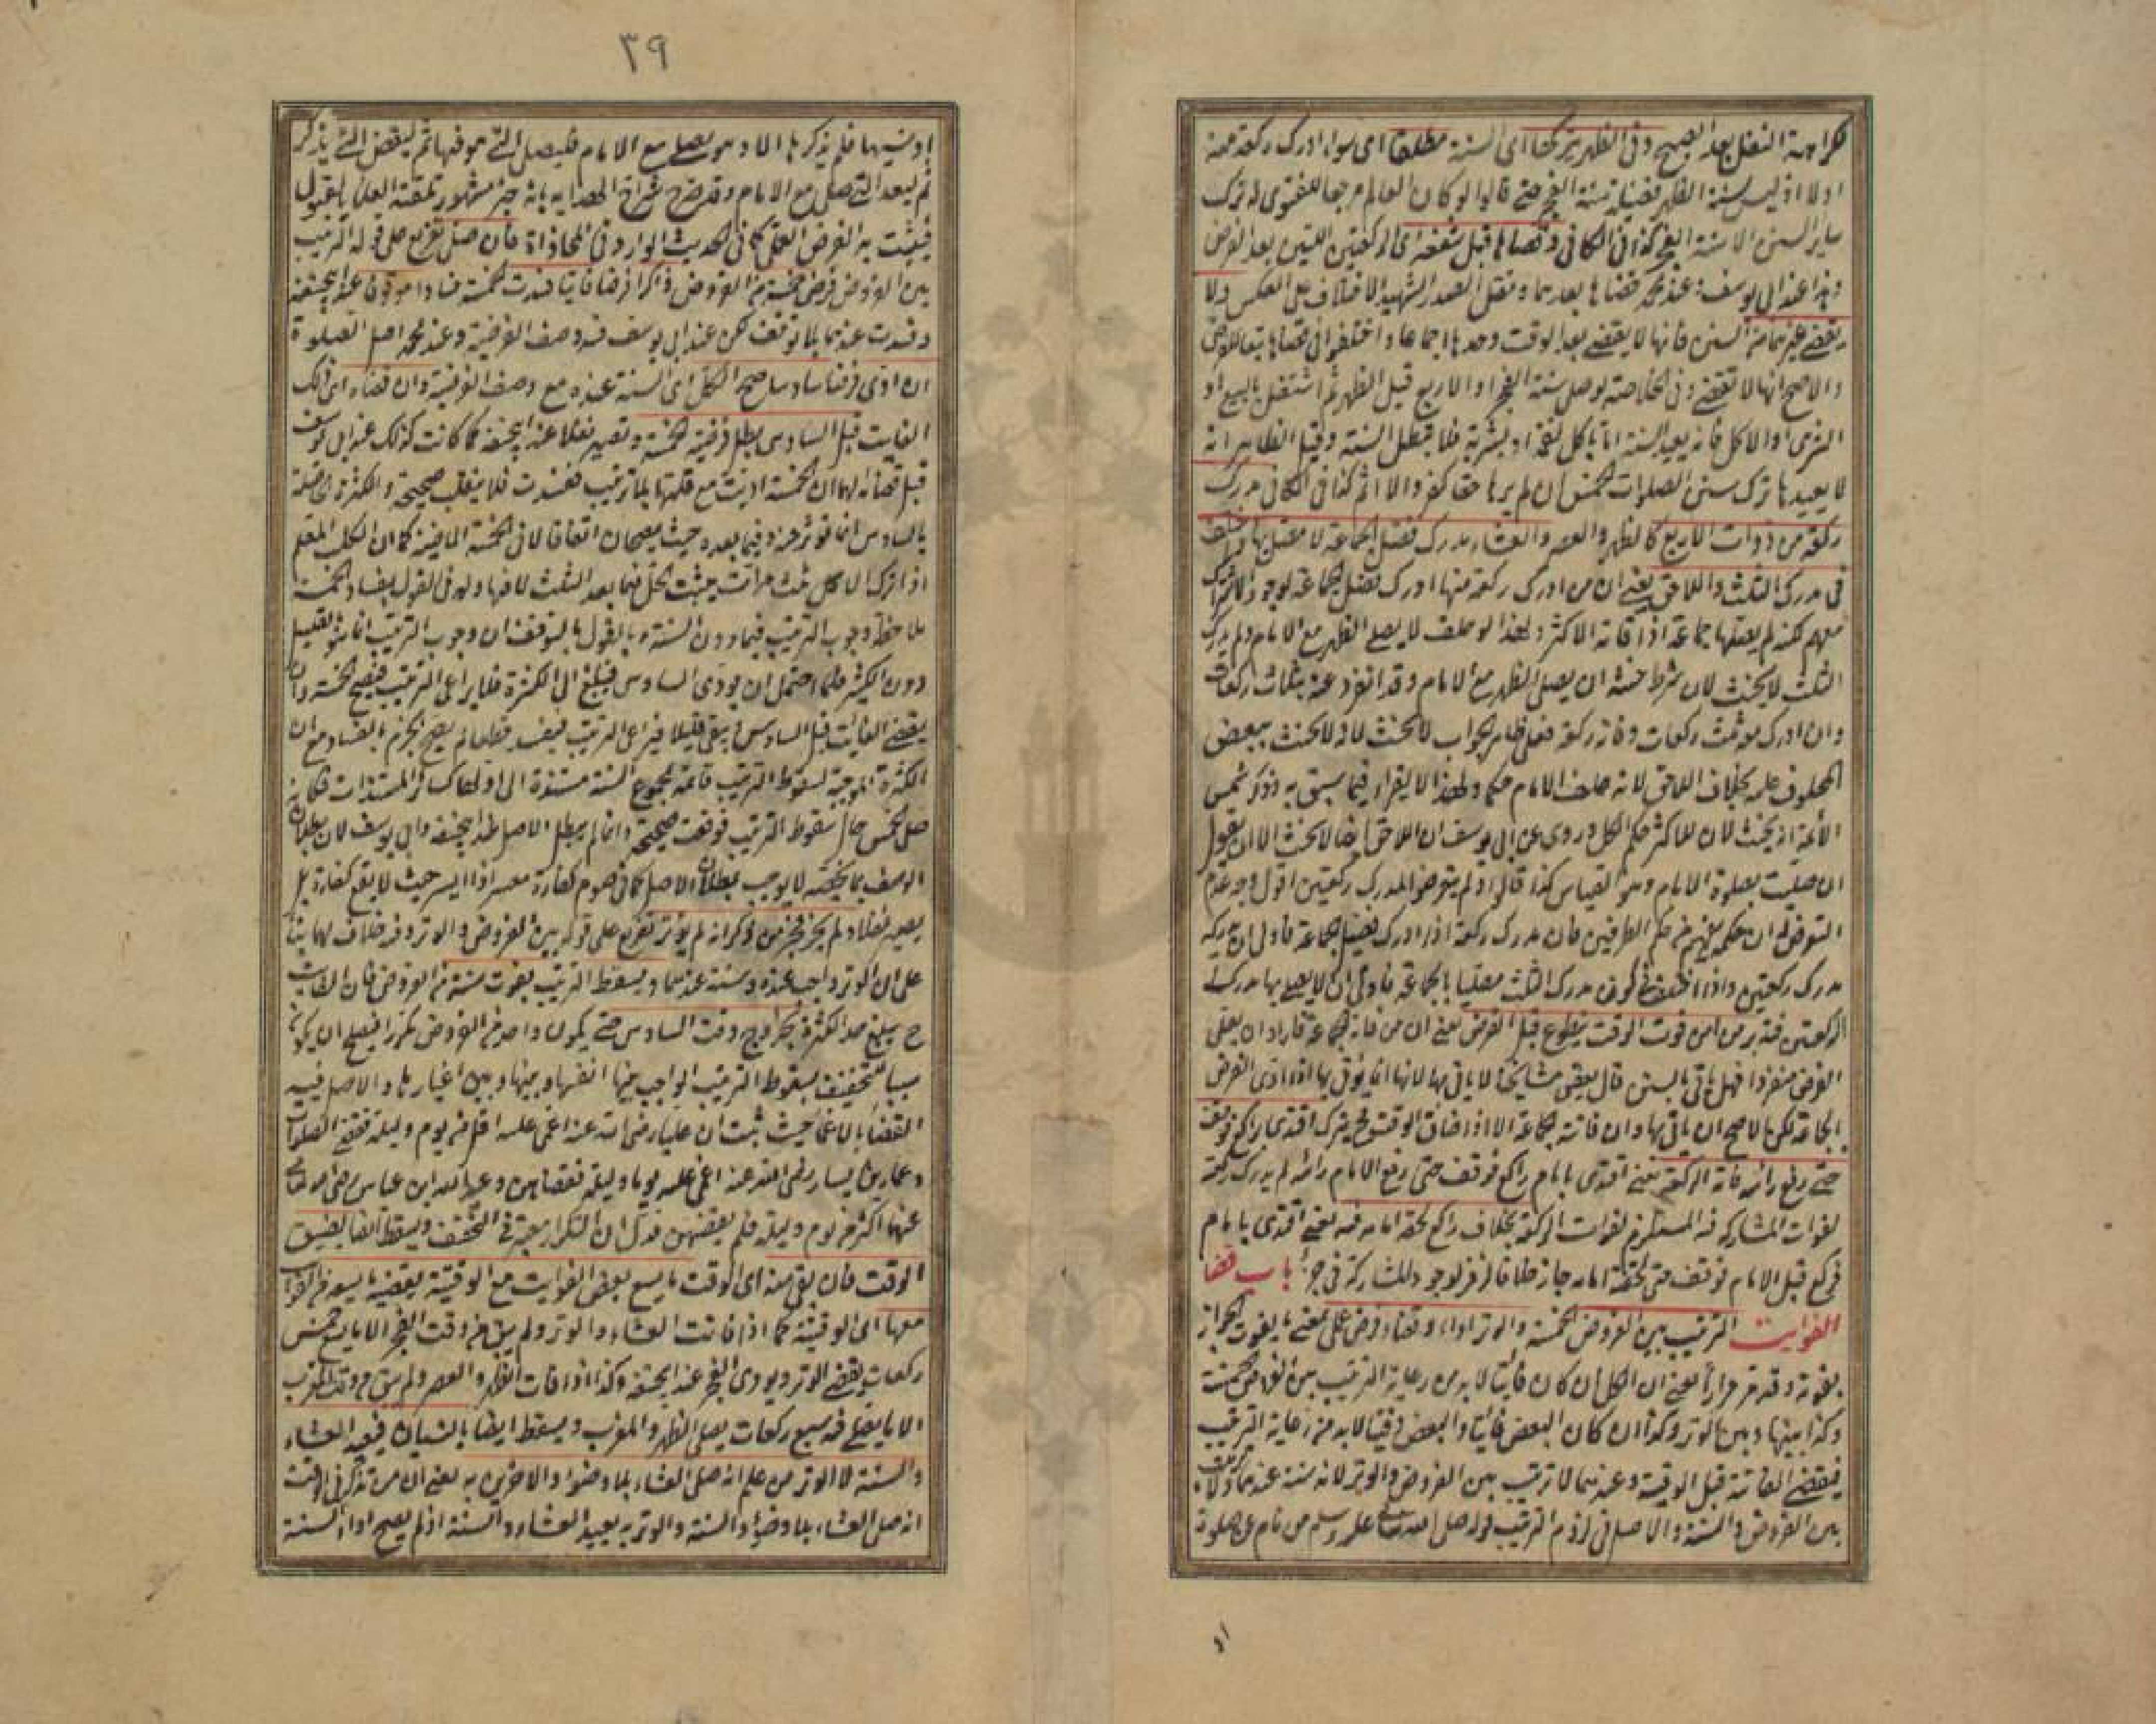 ٣٩
كراهة النفل بعد الصبح وفى الظهر يتركها اى السنة مطلقا اى سواء ادرك ركعة منه
اولا اذ ليس لسنة الظهر فضيلة سنة الفجر حتى قالوا لو كان العالم مرجعا للفتوى له ترك
سائر السنن الا سنة الفجر كذا فى الكافى وقضاها قبل شفعه اى الركعتين اللتين بعد الفرض
وهذا عند ابى يوسف وعند محمد قضاها بعدهما ونقل الصدر الشهيد الاختلاف على العكس ولا
يقضى غيرهما من السنن فانها لا يقضى بعد الوقت وحدها اجماعا واختلفوا فى قضاها تبعا للفرض
والاصح انها لا تقضى وفى الخلاصة لو صلى سنة الفجر او الاربع قبل الظهر ثم اشتغل بالبيع او
الشرى او الاكل فانه يعيد السنة اما باكل لقمة او بشربة فلا تبطل السنة وقيل الظاهر انه
لا يعيدها ترك سنن الصلوات الخمس ان لم يرها حقا كفر والا اثم كذا فى الكافى مدرك
ركعة من ذوات الاربع كالظهر والعصر والعشاء مدرك فضل الجماعة لا مصل بها
فى مدرك الثلث واللاحق يعنى ان من ادرك ركعة منها ادرك فضل الجماعة لوجود الاشتراك
معهم لكنه لم يصلها جماعة اذا فاته الاكثر ولهذا لو حلف لا يصلى الظهر مع الامام ولم يدرك
الثلث لا يحنث لان شرط حنثه ان يصلى الظهر مع الامام وقد انفرد عنه بثلاث ركعات
وان ادرك معه ثلث ركعات وفاته ركعة فعلى ظاهر الجواب لا يحنث لانه لا يحنث ببعض
المحلوف عليه بخلاف اللاحق لانه خلف الامام حكما ولهذا لا يقراء فيما سبق به وذكر شمس
الائمة انه يحنث لان للاكثر حكم الكل وروى عن ابى يوسف ان اللاحق ايضا لا يحنث الا ان يقول
ان صليت بصلوة الامام وهو القياس كذا قالوا ولم يتعرضوا لمدرك ركعتين اقول وجه عدم
التعرض له ان حكمه يفهم من حكم الطرفين فان مدرك ركعة اذا ادرك فضل الجماعة فاولى ان يدركه
مدرك ركعتين واذا اختلف فى كون مدرك الثلث مصليا بالجماعة فاولى ان لا يصلى بها مدرك
الركعتين فتدبر من امن فوت الوقت يتطوع قبل الفرض يعنى ان من فاته الجماعة فاراد ان يصلى
الفرض منفردا فهل ياتى بالسنن قال بعض مشايخنا لا ياتى بها لانها انما يؤتى بها اذا ادى الفرض
بالجماعة لكن الاصح ان ياتى بها وان فاتته الجماعة الا اذا ضاق الوقت فحينئذ يترك اقتدى براكع فوقف
حتى رفع رائسه فاته الركعة يعنى اقتدى بامام راكع فوقف حتى رفع الامام رائسه لم يدرك ركعة
لفوات المشاركة فيه المستلزم لفوات الركعة بخلاف راكع لحقه امامه فيه يعنى اقتدى بامام
فركع قبل الامام فوقف حتى لحقه امامه جاز خلافا لزفر لوجود المشاركة فى جزء باب قضا
الفوايت الترتيب بين الفروض الخمسة والوتر اداء وقضاء فرض عملى يعنى ما يفوت الجواز
بفوته وقد مر مرارا يعنى ان الكل ان كان فائتا لابد من رعاية الترتيب بين الفروض الخمسة
وكذا بينها وبين الوتر وكذا ان كان البعض فائتا والبعض وقتيا لابد من رعاية الترتيب
فيقضى الفائتة قبل الوقتية وعندهما لا ترتيب بين الفروض والوتر لانه سنة عندهما ولا ترتيب
بين الفروض والسنة والاصل فى لزوم الترتيب قوله صلى الله تعالى عليه وسلم من نام عن صلوة
او
او نسيها فلم يذكرها الا وهو يصلى مع الامام فليصل التى هو فيها ثم ليقض التى يذكر
ثم ليعد التى صلى مع الامام وقد صرح شراح الهداية بانه خبر مشهور تلقته العلماء بالقبول
فيثبت به الفرض العملى كما فى الحديث الوارد فى المحاذاة فان صلى تفريع على قوله الترتيب
بين الفروض فرض خمسة من الفروض ذاكرا فرضا فائتا فسدت الخمسة فسادا موقوفا عند ابى حنيفة
وفسدت عندهما بلا توقف لكن عند ابى يوسف فسد وصف الفرضية وعند محمد اصل الصلوة
ان ادى فرضا سادسا صح الكل اى الستة عنده مع وصف الفرضية وان قضاء اى ذلك
الفايت قبل السادس بطل فرضية الخمسة وتصير نفلا عند ابى حنيفة كما كانت كذلك عند ابى يوسف
قبل قضائه لهما ان الخمسة اديت مع قلتها بلا ترتيب ففسدت فلا ينقلب صحيحة والكثرة الحاصلة
بالسادس انما تؤثر فيه وفيما بعده حيث يصحان اتفاقا لا فى الخمسة الماضية كما ان الكلب المعلم
اذا ترك الاكل ثلث مرات يثبت الحل فيما بعد الثلث لا فيها وله فى القول بفساد الخمسة
ملاحظة وجوب الترتيب فيما دون الستة وبالقول بالتوقف ان وجوب الترتيب انما هو للقليل
دون الكثير فلما احتمل ان يودى السادس فيبلغ الى الكثرة فلا يراعى الترتيب فيصح الخمسة وان
يقضى الفائت قبل السادس ويبقى قليلا فيراعى الترتيب فيفسد قطعا لم يصح الجزم بالفساد مع ان
الكثرة الموجبة لسقوط الترتيب قائمة بمجموع الستة مستندة الى اولها كسائر المستندات فكانه
صلى الخمس حال سقوط الترتيب فوقعت صحيحة وانما لم يبطل الاصل عند ابى حنيفة وابى يوسف لان بطلان
الوصف بما يختصه لا يوجب بطلان الاصل كما فى صوم كفارة معسر اذا ايسر حيث لا يقع كفارة بل
يصير نفلا ولم يجز فجر من ذكر انه لم يوتر تفريع على قوله بين الفروض والوتر وفيه خلاف لهما بناء
على ان الوتر واجب عنده وسنة عندهما ويسقط الترتيب بفوت ستة من الفروض فان الفائت
ح يبلغ حد الكثرة بخروج وقت السادس حتى يكون واحد من الفروض مكررا فيصلح ان يكون
سببا للتخفيف بسقوط الترتيب الواجب بينها انفسها وبينها وبين اغيارها والاصل فيه
القضاء بالاغماء حيث ثبت ان عليا رضى الله عنه اغمى عليه اقل من يوم وليلة فقضى الصلوات
وعمار بن ياسر رضى الله عنه اغمى عليه يوما وليلة فقضاهن وعبد الله ابن عباس رضى الله تعالى
عنهما اكثر من يوم وليلة فلم يقضهن فدل ان التكرار معتبر فى التخفيف ويسقط ايضا بضيق
الوقت فان بقى منه اى الوقت ما يسع بعض الفوايت مع الوقتية يقضيه ما يسعه من الفوايت
معها اى الوقتية كما اذا فاتت العشاء والوتر ولم يبق من وقت الفجر الا ما يسع خمس
ركعات يقضى الوتر ويودى الفجر عند ابى حنيفة وكذا اذا فات الظهر والعصر ولم يبق من وقت المغرب
الا ما يصلى فيه سبع ركعات يصلى الظهر والمغرب ويسقط ايضا بالنسيان فيعيد العشاء
والسنة لا الوتر من علم انه صلى العشاء بلا وضوء والاخرين به يعنى ان من تذكر فى الوقت
انه صلى العشاء بلا وضوء والسنة والوتر به يعيد العشاء والسنة اذ لم يصح اداء السنة